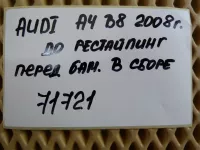 AUDI A4 B8 2008г.
ДО РЕСТАЙЛИНГ
ПЕРЕД БАМ. В СБОРЕ
71721